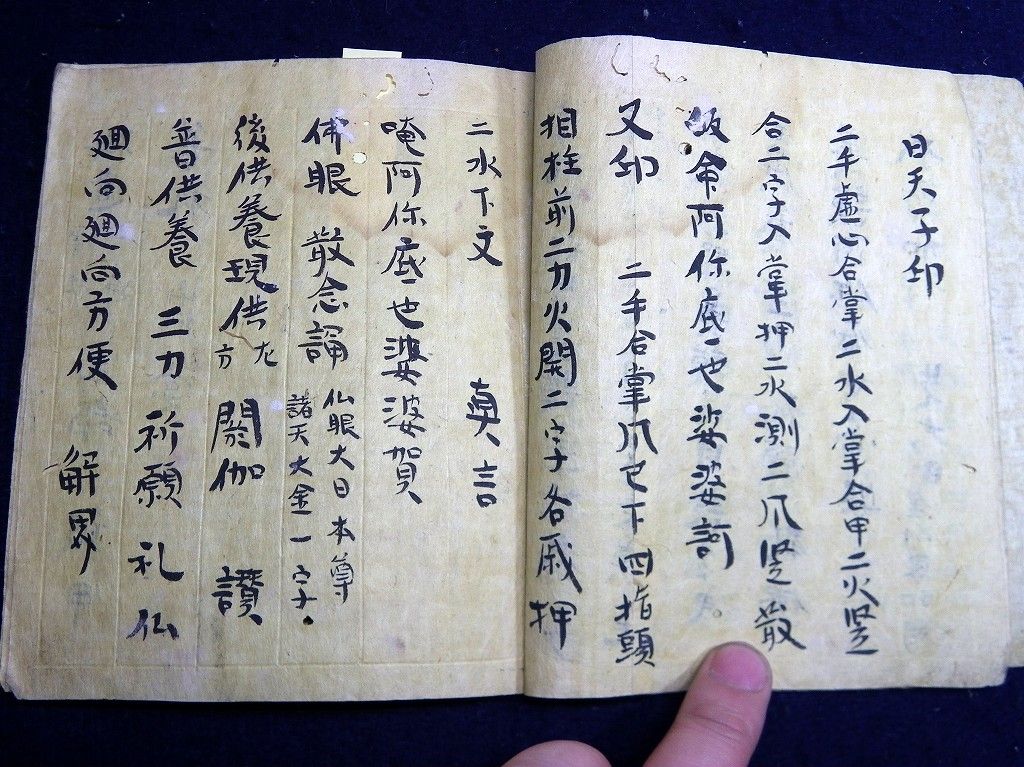 日天子印
二手虚心合掌二水入掌合甲二火竖
合二字入掌押二水測二爪竖散
皈命阿你底也娑婆訶
又印 二手合掌爪已下四指頭
相柱前二力火開二字各戚押
二水下文 真言
唵阿你底也婆婆賀
佛眼 散念誦 仏眼大日本尊
諸天大金一字
後供養現供 方左 閼伽 讃
普供養 三力 祈願 礼仏
廻向廻向方便 解界